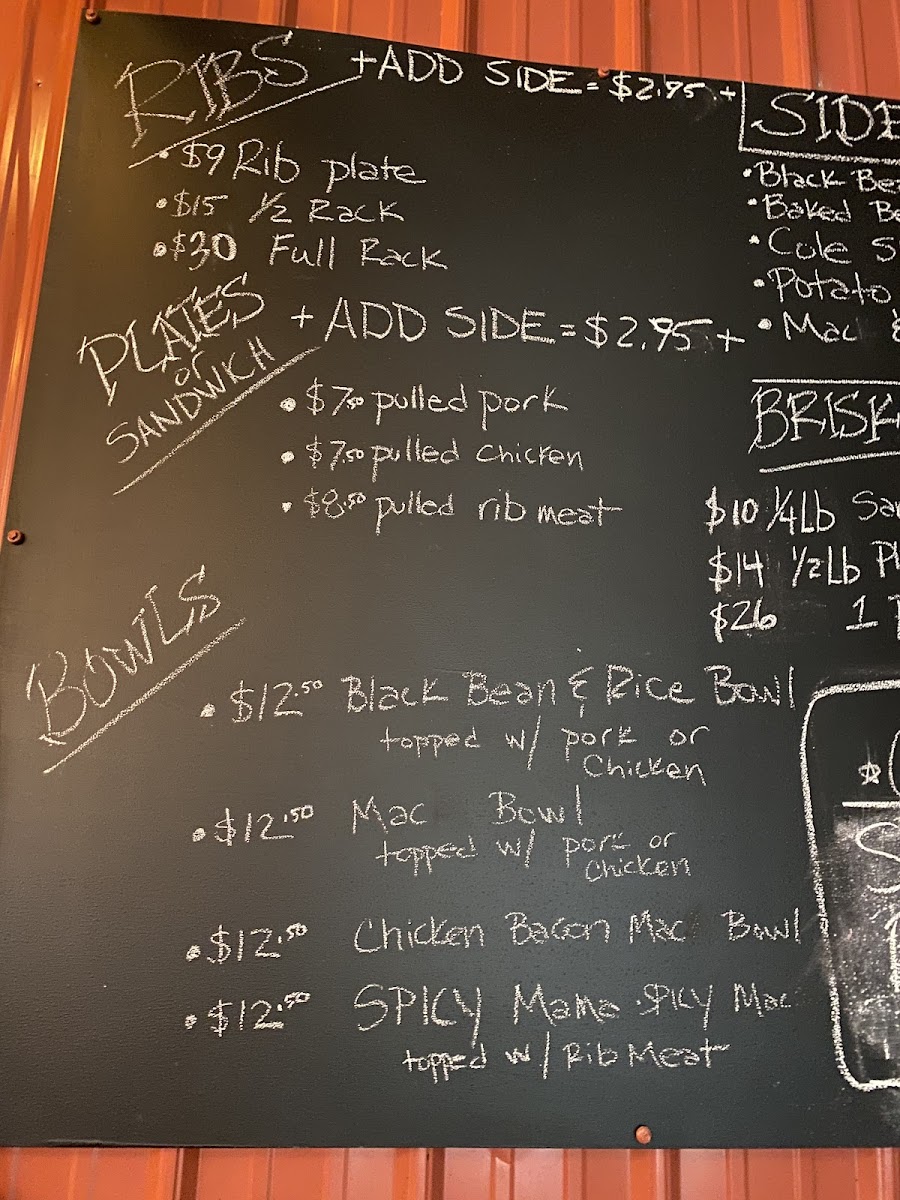 RIBS +ADD SIDE = $2.95 +
• $9 Rib plate
• $15 1/2 Rack
• $30 Full Rack
PLATES
or
SANDWICH
+ ADD SIDE = $2.95 +
• $7.50 pulled pork
• $7.50 pulled chicken
• $8.50 pulled rib meat
BOWLS
• $12.50 Black Bean & Rice Bowl
topped w/ pork or
Chicken
• $12.50 Mac Bowl
topped w/ pork or
Chicken
• $12.50 Chicken Bacon Mac Bowl
• $12.50 SPICY Mama SPICY Mac
topped w/ Rib Meat
SIDE
• Black Bea
• Baked Be
• Cole S
• Potato
• Mac &
BRISK
$10 1/4 Lb Sa
$14 1/2 Lb Pl
$26 1